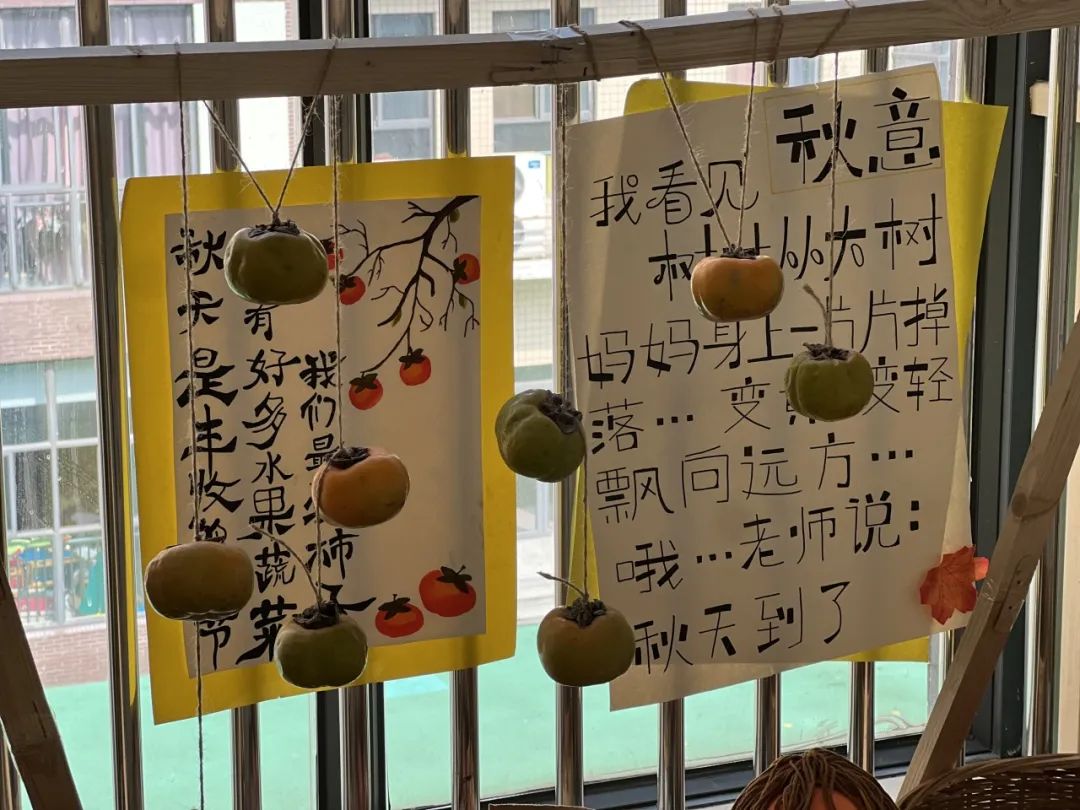 秋天是丰收的节
有好多水果蔬菜
我们最柿子
秋意
我看见
树从大树
妈妈身上一片片掉
落…变变轻
飘向远方…
哦…老师说：
秋天到了